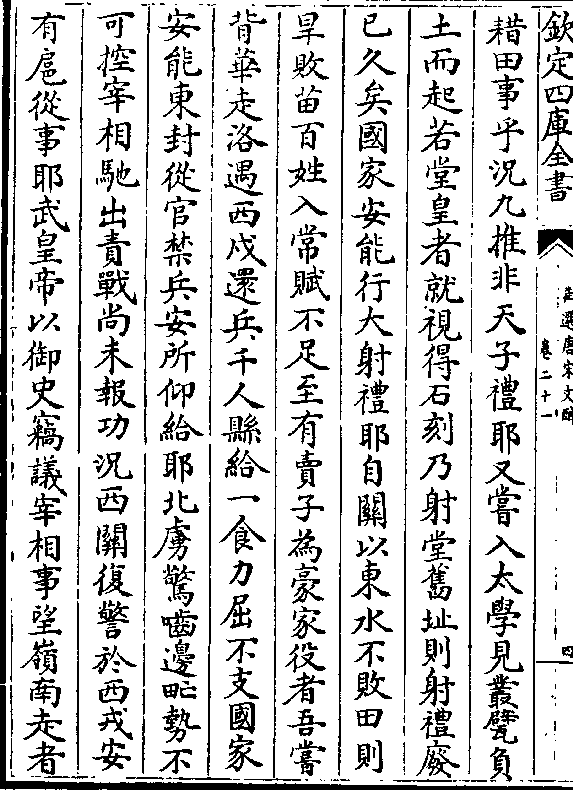 欽定四庫全書
御選唐宋文醇
卷二十一
四
耤田事乎況九推非天子禮耶又嘗入太學見叢甓負
土而起若堂皇者就視得石刻乃射堂舊址則射禮廢
已久矣國家安能行大射禮耶自關以東水不敗田則
旱敗苗百姓入常賦不足至有賣子為豪家役者吾嘗
背華走洛遇西戍還兵千人縣給一食力屈不支國家
安能東封從官禁兵安所仰給耶北虜驚嚙邊甿勢不
可控宰相馳出責戰尚未報功況西關復警於西戎安
有扈從事耶武皇帝以御史竊議宰相事望嶺南走者